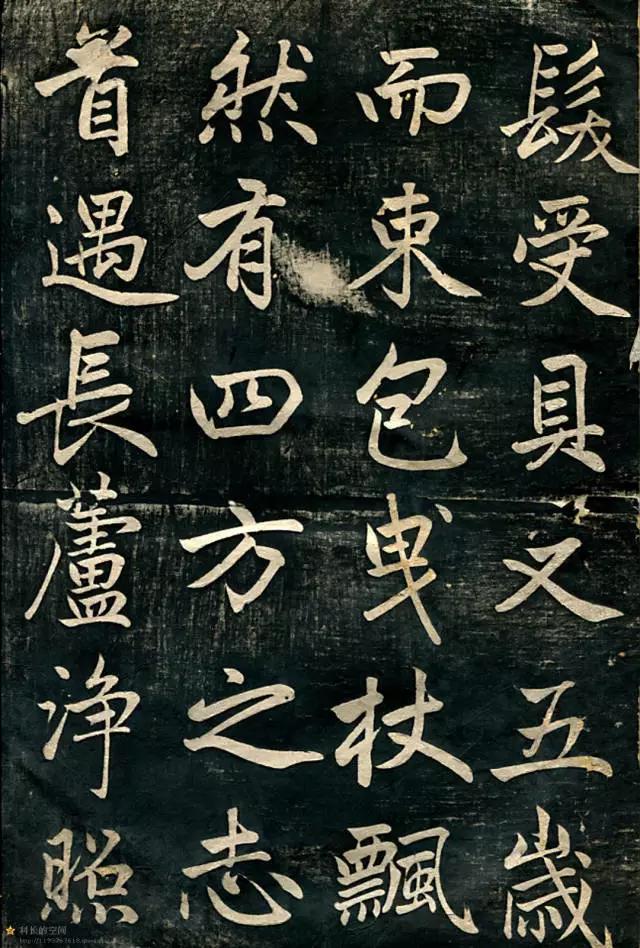 髮受具又五歲
而束包曳杖飄
然有四方之志
首遇長蘆淨照
科长的空间